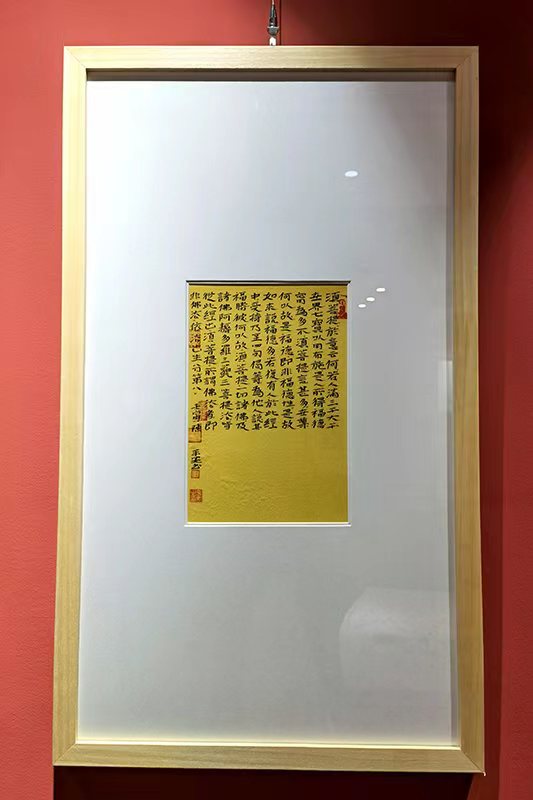 須菩提於意云何若人滿三千大千
世界七寶以用布施是人所得福德
寧為多不須菩提言甚多世尊
何以故是福德即非福德性是故
如来說福德多若復有人於此經
中受持乃至四句偈等為他人說其
福勝彼何以故須菩提一切諸佛及
諸佛阿耨多羅三藐三菩提法皆
從此經出須菩提所謂佛法者即
非佛法依法出生分第八